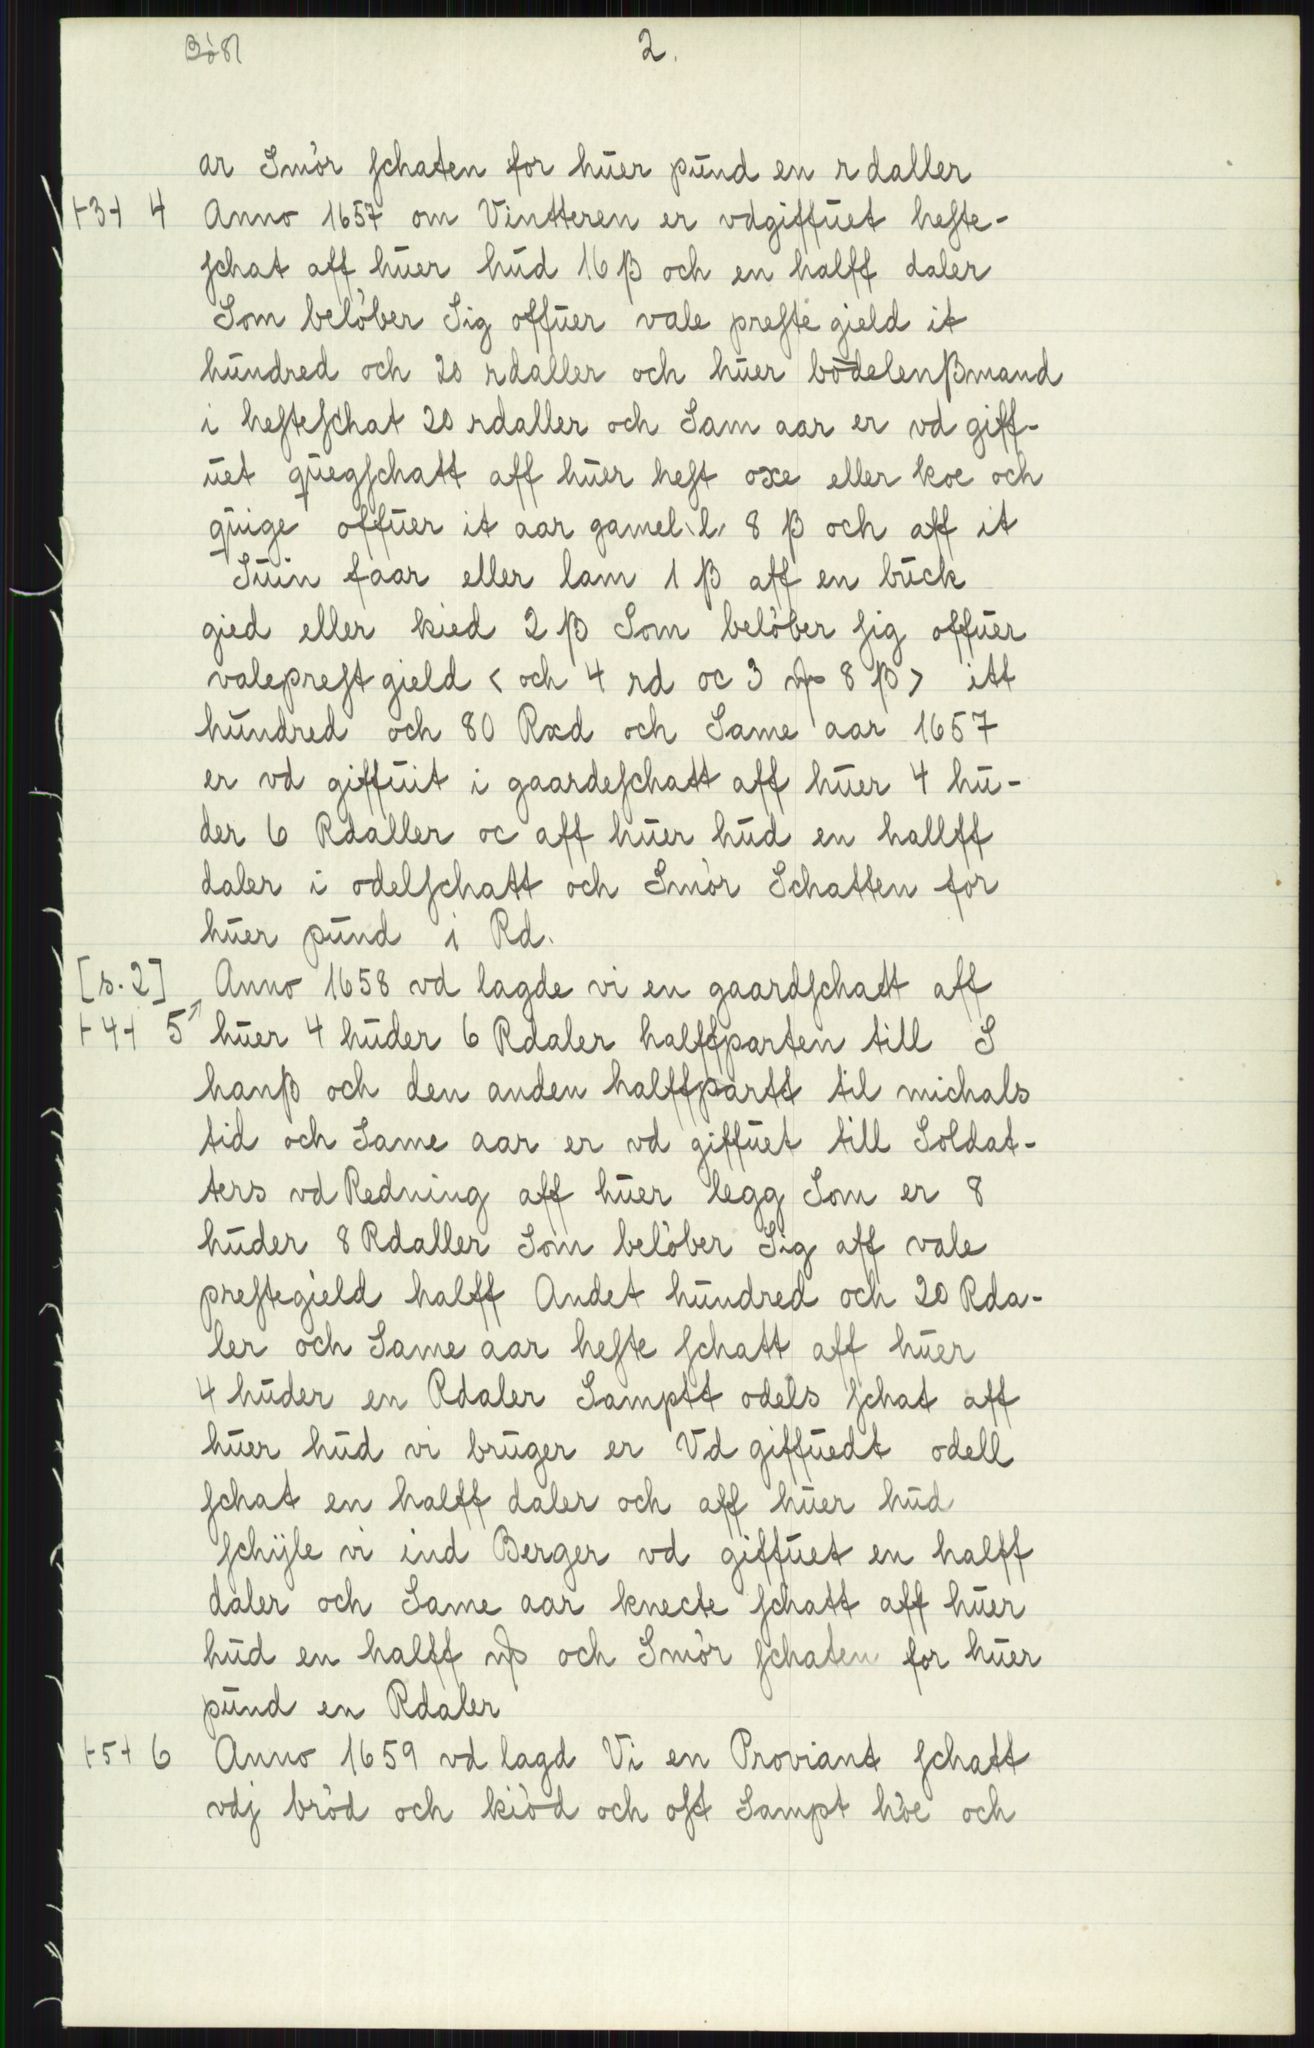 2.
ar Smör schaten for huer pund en rdaller
+3+ 4 Anno 1657 om Vintteren er vdgiffuet heste-
schat aff huer hud 16 β och en halff daler
Som belöber Sig offuer vale preste gield it
hundred och 20 rdaller och huer bödelenβmand
i hesteschat 20 rdaller och Sam aar er vd giff-
uet quegschatt aff huer hest oxe eller koe och
quige offuer it aar gamel \l/ 8 β och aff it
Suin faar eller lam 1 β aff en buck
gied eller kied 2 β Som belöber sig offuer
valeprest gield < och 4 rd oc 3 mβ 8 β > itt
hundred och 80 Rxd och Same aar 1657
er vd giffuit i gaardeschatt aff huer 4 hu-
der 6 Rdaller oc aff huer hud en hallff
daler i odelschatt och Smör Schatten for
huer pund i Rd.
[s. 2] Anno 1658 vd lagde vi en gaardschatt aff
+4+ 5 huer 4 huder 6 Rdaler halffparten till S
hanβ och den anden halffpartt til michals
tid och Same aar er vd giffuet till Soldat-
ters vd Redning aff huer legg Som er 8
huder 8 Rdaller Som belöber Sig aff vale
prestegield halff Andet hundred och 20 Rda-
ler och Same aar heste schatt aff huer
4 huder en Rdaler Samptt odels schat aff
huer hud vi bruger er Vd giffuedt odell
schat en halff daler och aff huer hud
schÿle vi ind Berger vd giffuet en halff
daler och Same aar knecte schatt aff huer
hud en halff mβ och Smör schaten for huer
pund en Rdaler
+5+ 6 Anno 1659 vd lagd Vi en Proviant schatt
vdj bröd och kiöd och ost Sampt höe och